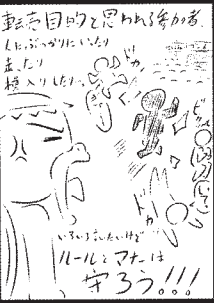 転売目的と思われる参加者、
人にぶつかりにいったり
走ったり
横入りしたり…
ドカ
ドカ
いろいろ言いたいけど
ルールとマナーは
守ろう!!!